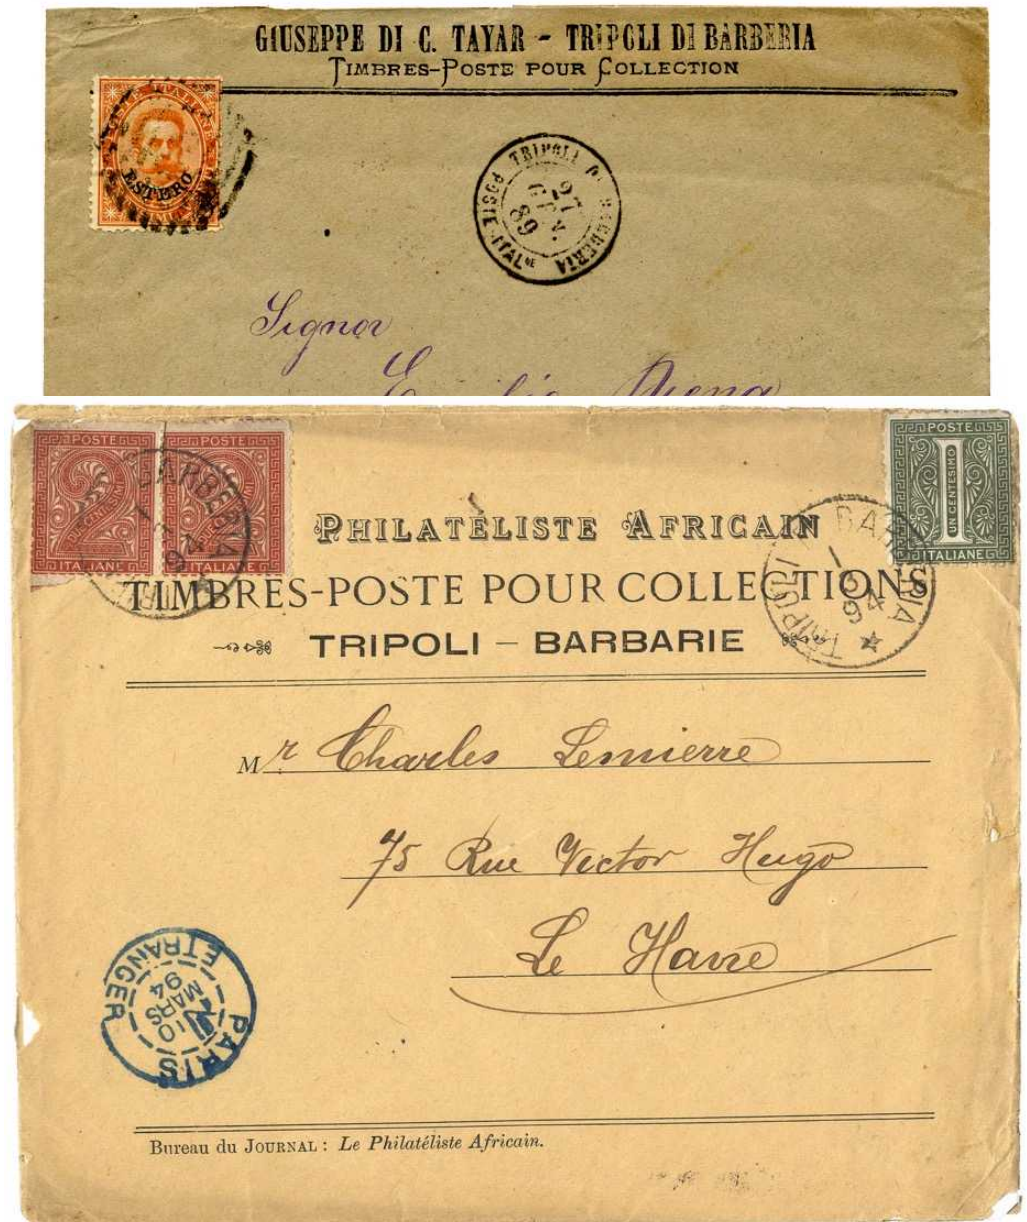 GIUSEPPE DI C. TAYAR - TRIPOLI DI BARBERIA
TIMBRES-POSTE POUR COLLECTION
ESTERO
TRIPOLI DI BARBERIA
27
GEN.
89
POSTE ITALNE
Signor
Emilio Diena
POSTE
2
ITALIANE
POSTE
2
ITALIANE
BARBERIA
94
POSTE
1
UN CENTESIMO
ITALIANE
TRIPOLI BARBERIA
94
PHILATÉLISTE AFRICAIN
TIMBRES-POSTE POUR COLLECTIONS
TRIPOLI - BARBARIE
Mr Charles Lemierre
75 Rue Victor Hugo
Le Havre
PARIS ETRANGER
10
MARS
94
Bureau du JOURNAL : Le Philatéliste Africain.